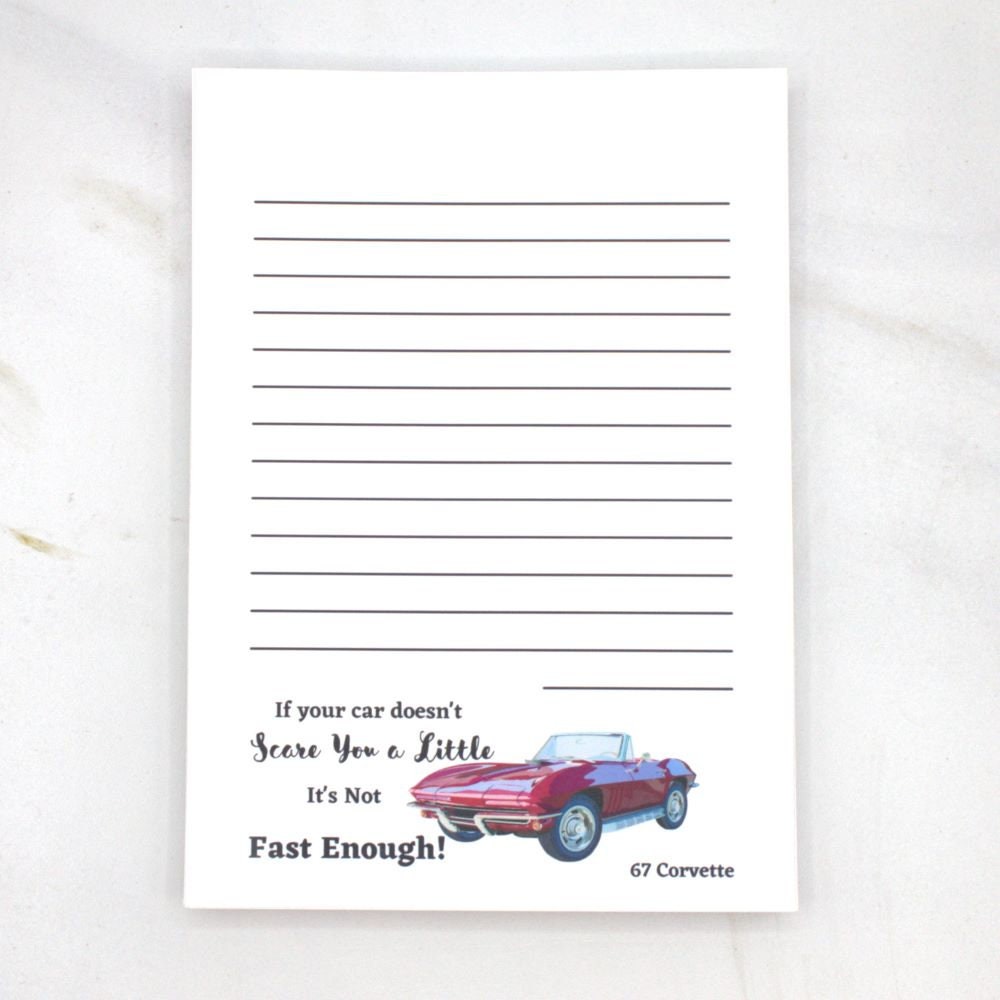 If your car doesn't
Scare You a Little
It's Not
Fast Enough!
67 Corvette